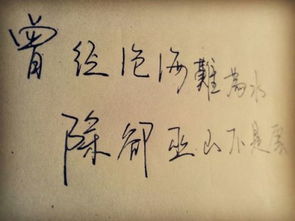 曾经沧海難為水
除卻巫山不是雲